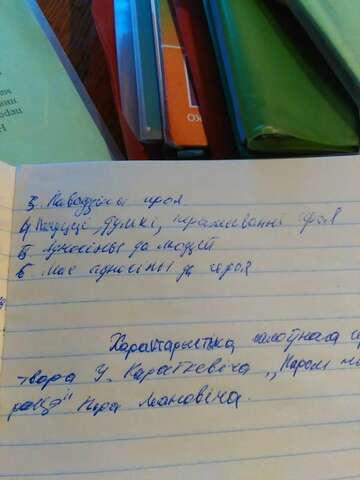 3. Паводзіны героя
4. Пачуцці, думкі, перажыванні героя
5. Адносіны да людзей
6. Мае адносіны да героя
Характарыстыка галоўнага
твора У. Караткевіча ,,Паром на
рацэ" Пора Леановіча.